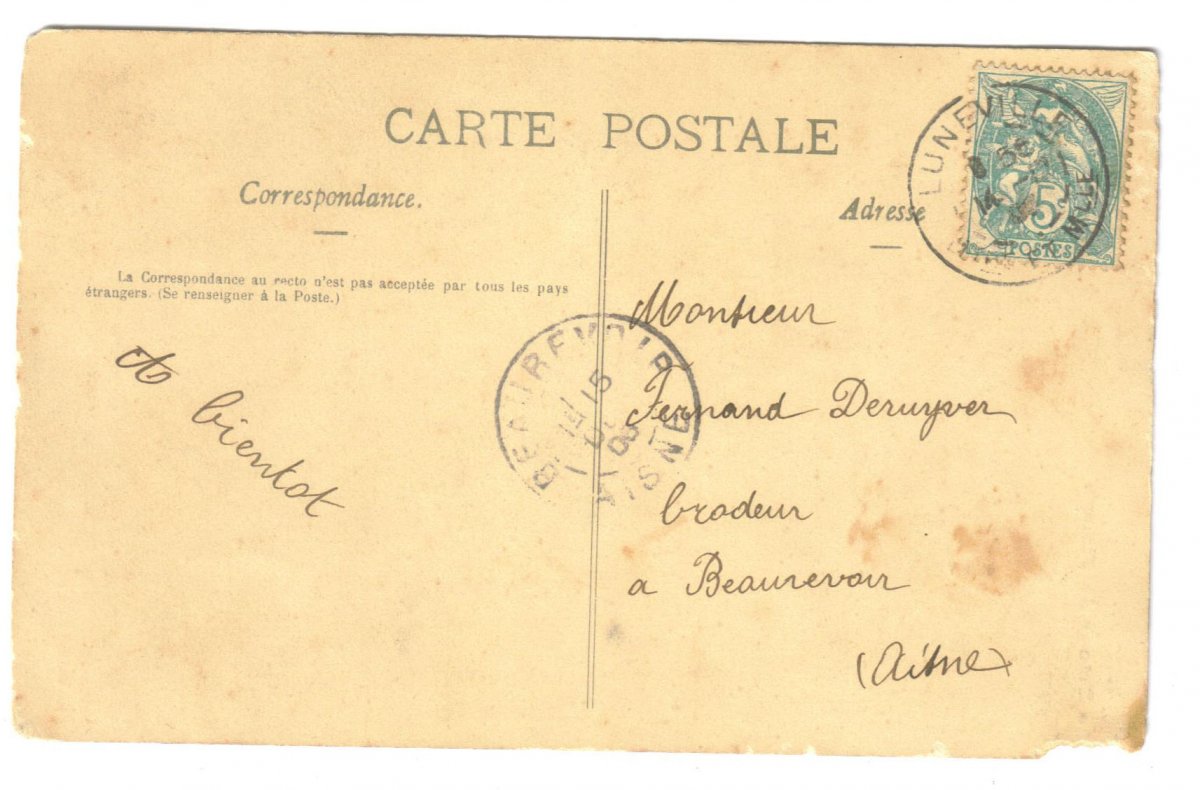 CARTE POSTALE
Correspondance.
La Correspondance au recto n'est pas acceptée par tous les pays
étrangers. (Se renseigner à la Poste.)
A bientot
Adresse
LUNEVILLE
14
5
POSTES
BEAUREVOIR
15
AISNE
Monsieur
Fernand Deruyver
brodeur
a Beaurevoir
(Aisne)